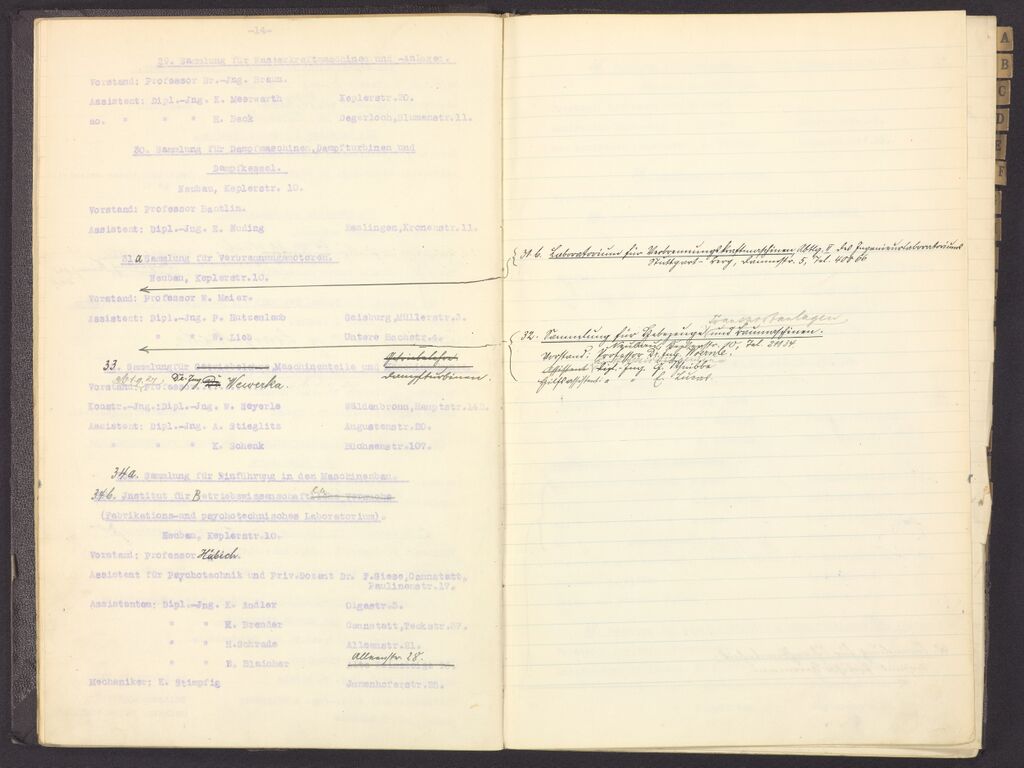 -14-
29. Sammlung für Wasserkraftmaschinen und -Anlagen.
Vorstand: Professor Dr.-Jng. Braun.
Assistent: Dipl.-Jng. K. Meerwarth Keplerstr.20.
ao. " " " H. Beck Degerloch,Blumenstr.11.
30. Sammlung für Dampfmaschinen,Dampfturbinen und
Dampfkessel.
Neubau, Keplerstr. 10.
Vorstand: Professor Bantlin.
Assistent: Dipl.-Jng. E. Nuding Esslingen,Kronenstr.11.
31a Sammlung für Verbrennungsmotoren.
Neubau, Keplerstr.10.
Vorstand: Professor W. Maier.
Assistent: Dipl.-Jng. P. Hutzenlaub Gaisburg,Müllerstr.3.
" " W. Lieb Untere Bachstr.4.
33. Sammlung für Maschinenteile und
Dampfturbinen.
Vorstand: Professor Wewerka.
Konstr.-Jng.:Dipl.-Jng. W. Beyerle Wäldenbronn,Hauptstr.140.
Assistent: Dipl.-Jng. A. Stieglitz Augustenstr.20.
" " " K. Schenk Büchsenstr.107.
34a. Sammlung für Einführung in den Maschinenbau.
34b. Institut für Betriebswissenschaft
(Fabrikations-und psychotechnisches Laboratorium).
Neubau, Keplerstr.10.
Vorstand: Professor Hübich.
Assistent für Psychotechnik und Priv.Dozent Dr. F.Giese,Cannstatt,
Paulinenstr.19.
Assistenten: Dipl.-Jng. K. Andler Olgastr.5.
" " H. Brender Cannstatt,Teckstr.27.
" " H.Schrade Alleenstr.21.
" " B. Bleicher Alleenstr. 28.
Mechaniker: K. Stimpfig Jmmenhoferstr.25.
31b. Laboratorium für Verbrennungskraftmaschinen Abtlg. II des Ingenieurlaboratoriums
Stuttgart-Berg, 5, Tel. 40966
Transportanlagen
32. Sammlung für Hebezeuge und Baumaschinen.
Neubau, Keplerstr. 10, Tel. 29134
Vorstand. Professor Dr. Ing. Woernle.
Assistent Dipl.-Ing.
Hilfsassistent " "
A
B
C
D
E
F